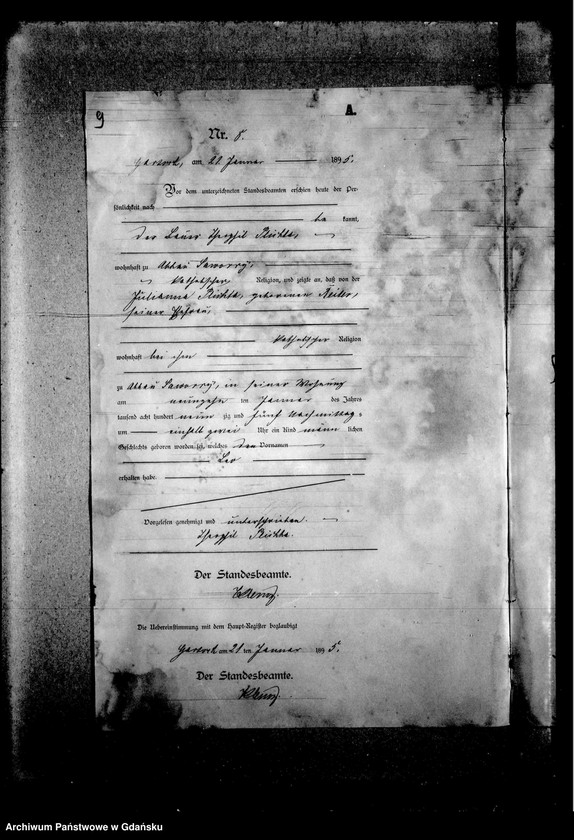 9
A.
Nr. 8.
am 21. Januar 1895.
Vor dem unterzeichneten Standesbeamten erschien heute, der Per-
sönlichkeit nach
be kannt,
der Bauer Theophil
wohnhaft zu Abbau
katholischer Religion, und zeigte an, daß von der
Julianna geborenen Reiter,
seiner Ehefrau,
katholischer Religion
wohnhaft bei ihm
zu Abbau in seiner Wohnung
am neunzehn ten Januar des Jahres
tausend acht hundert neun zig und fünf Nachmittag-
um einhalb zwei Uhr ein Kind männ lichen
Geschlechts geboren worden sei, welches den Vornamen
Leo
erhalten habe.
Vorgelesen, genehmigt und unterschrieben.
Theophil
Der Standesbeamte.
Die Uebereinstimmung mit dem Haupt-Register beglaubigt
am 21. ten Januar 1895.
Der Standesbeamte.
Archiwum Państwowe w Gdańsku